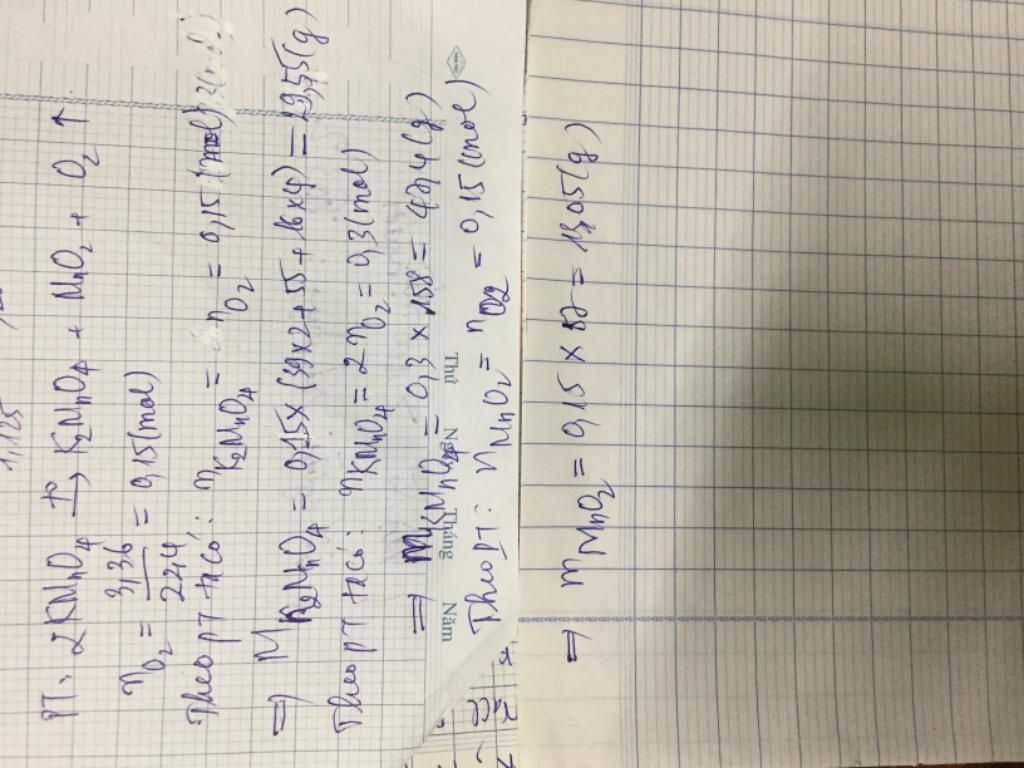 1,125
PT: 2KMnO4 t° → K2MnO4 + MnO2 + O2 ↑
nO2 = 3,36 / 22,4 = 0,15 (mol)
Theo PT ta có: nK2MnO4 = nO2 = 0,15 (mol)
⇒ M K2MnO4 = 0,15 x (39x2 + 55 + 16x4) = 29,55 (g)
Theo PT ta có: nKMnO4 = 2nO2 = 0,3 (mol)
⇒ mKMnO4 = 0,3 x 158 = 47,4 (g)
Thứ Ngày Tháng Năm
Theo PT: nMnO2 = nO2 = 0,15 (mol)
⇒ mMnO2 = 0,15 x 87 = 13,05 (g)